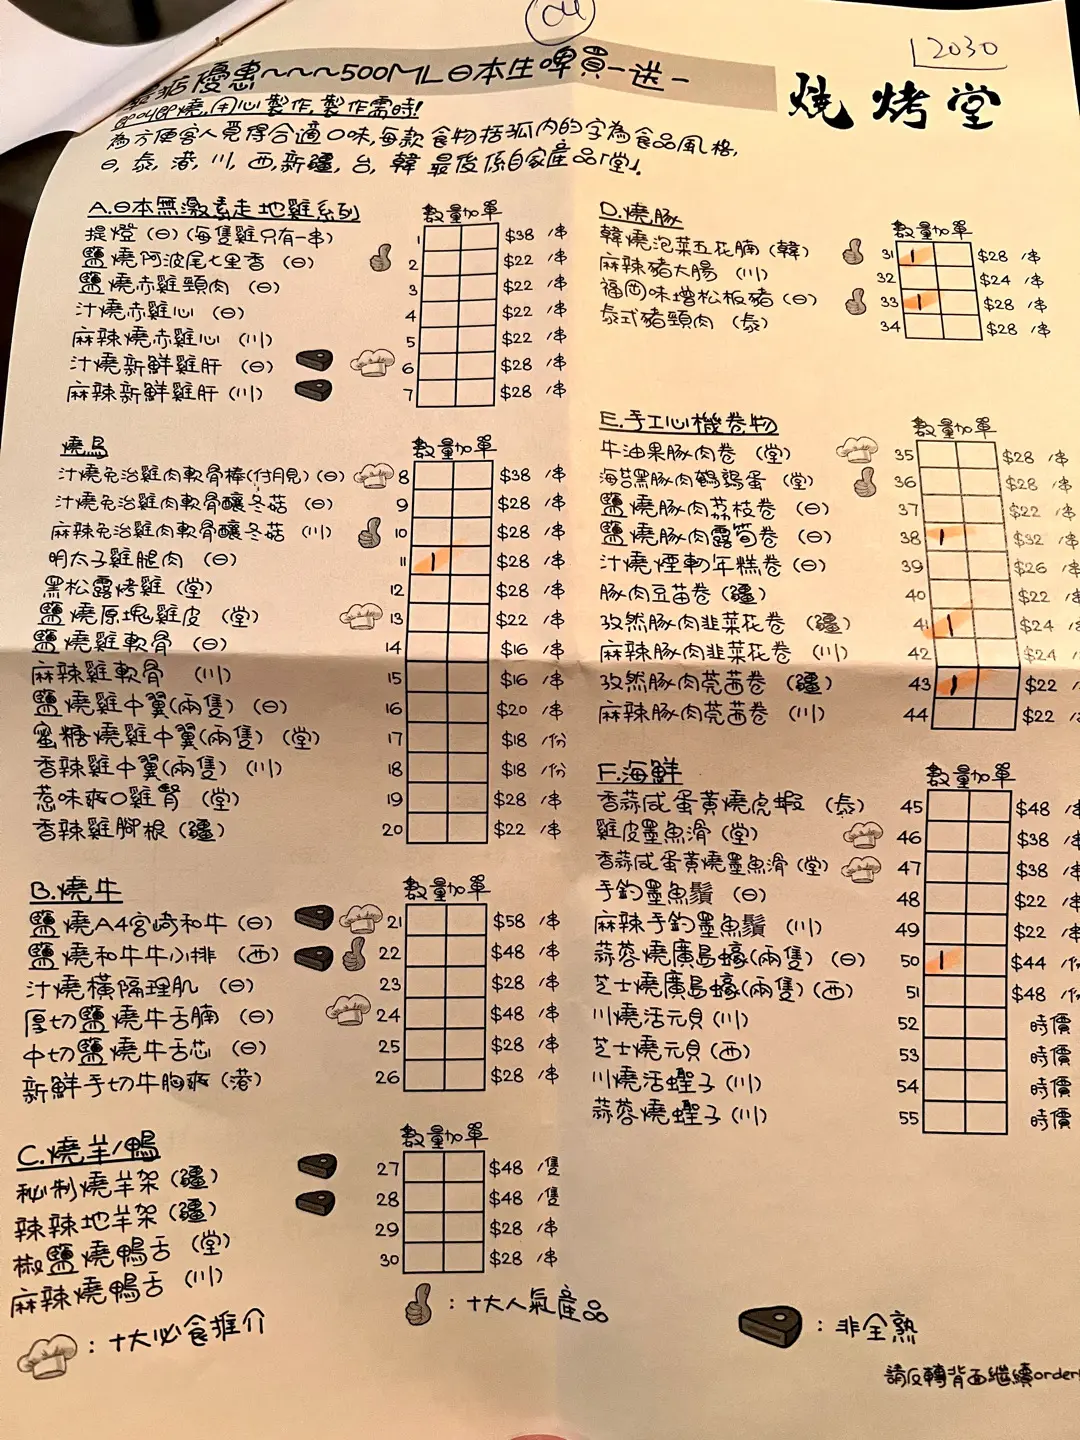 04
2030
優惠~~~500ML日本生啤買一送一
燒烤堂
即叫即燒,用心製作,製作需時!
為方便客人覓得合適口味,每款食物括弧內的字為食品風格,
日,泰,港,川,西,新疆,台,韓 最後係自家產品「堂」.
A.日本無激素走地雞系列 數量 加單
提燈(日)(每隻雞只有一串) 1 $38 /串
鹽燒阿波尾七里香(日) 2 $22 /串
鹽燒赤雞頸肉(日) 3 $22 /串
汁燒赤雞心(日) 4 $22 /串
麻辣燒赤雞心(川) 5 $22 /串
汁燒新鮮雞肝(日) 6 $28 /串
麻辣新鮮雞肝(川) 7 $28 /串
燒鳥 數量 加單
汁燒免治雞肉軟骨棒(付月見)(日) 8 $38 /串
汁燒免治雞肉軟骨釀冬菇(日) 9 $28 /串
麻辣免治雞肉軟骨釀冬菇(川) 10 $28 /串
明太子雞腿肉(日) 11 1 $28 /串
黑松露烤雞(堂) 12 $28 /串
鹽燒原塊雞皮(堂) 13 $22 /串
鹽燒雞軟骨(日) 14 $16 /串
麻辣雞軟骨(川) 15 $16 /串
鹽燒雞中翼(兩隻)(日) 16 $20 /串
蜜糖燒雞中翼(兩隻)(堂) 17 $18 /份
香辣雞中翼(兩隻)(川) 18 $18 /份
惹味爽口雞腎(堂) 19 $28 /串
香辣雞腳根(疆) 20 $22 /串
B.燒牛 數量 加單
鹽燒A4宮崎和牛(日) 21 $58 /串
鹽燒和牛牛小排(西) 22 $48 /串
汁燒橫隔理肌(日) 23 $28 /串
厚切鹽燒牛舌腩(日) 24 $48 /串
中切鹽燒牛舌芯(日) 25 $28 /串
新鮮手切牛胸爽(港) 26 $28 /串
C.燒羊/鴨 數量 加單
秘制燒羊架(疆) 27 $48 /隻
辣辣地羊架(疆) 28 $48 /隻
椒鹽燒鴨舌(堂) 29 $28 /串
麻辣燒鴨舌(川) 30 $28 /串
D.燒豚 數量 加單
韓燒泡菜五花腩(韓) 31 1 $28 /串
麻辣豬大腸(川) 32 $24 /串
福岡味增松板豬(日) 33 1 $28 /串
泰式豬頸肉(泰) 34 $28 /串
E.手工心機卷物 數量 加單
牛油果豚肉卷(堂) 35 $28 /串
海苔黑豚肉鵪鶉蛋(堂) 36 $28 /串
鹽燒豚肉荔枝卷(日) 37 $22 /串
鹽燒豚肉露筍卷(日) 38 1 $32 /串
汁燒煙靭年糕卷(日) 39 $26 /串
豚肉豆苗卷(疆) 40 $22 /串
孜然豚肉韭菜花卷(疆) 41 1 $24 /串
麻辣豚肉韭菜花卷(川) 42 $24 /串
孜然豚肉莞茜卷(疆) 43 1 $22 /串
麻辣豚肉莞茜卷(川) 44 $22 /串
F.海鮮 數量 加單
香蒜咸蛋黃燒虎蝦(泰) 45 $48 /串
雞皮墨魚滑(堂) 46 $38 /串
香蒜咸蛋黃燒墨魚滑(堂) 47 $38 /串
手釣墨魚鬚(日) 48 $22 /串
麻辣手釣墨魚鬚(川) 49 $22 /串
蒜蓉燒廣島蠔(兩隻)(日) 50 1 $44 /份
芝士燒廣島蠔(兩隻)(西) 51 $48 /份
川燒活元貝(川) 52 時價
芝士燒元貝(西) 53 時價
川燒活蟶子(川) 54 時價
蒜蓉燒蟶子(川) 55 時價
:十大必食推介
:十大人氣產品
:非全熟
請反轉背面繼續order